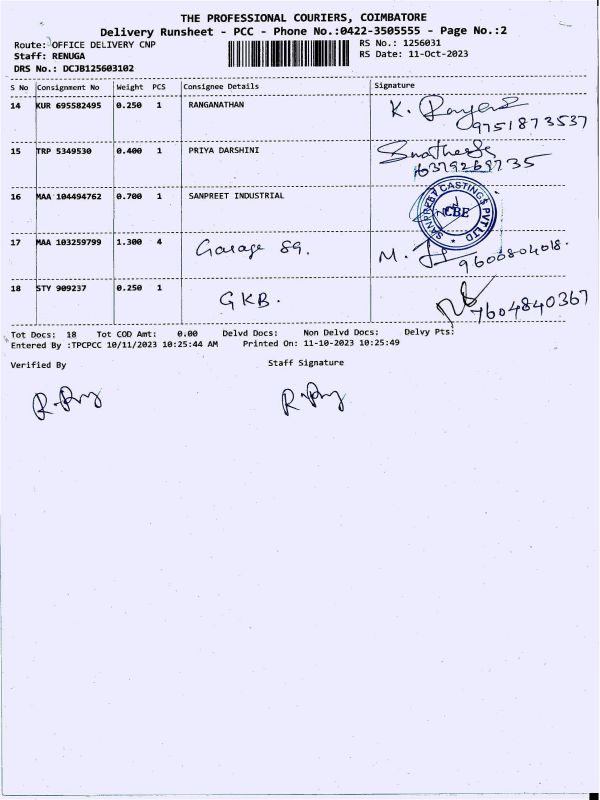 THE PROFESSIONAL COURIERS, COIMBATORE
Delivery Runsheet - PCC - Phone No.:0422-3505555 - Page No.:2
Route: OFFICE DELIVERY CNP RS No.: 1256031
Staff: RENUGA RS Date: 11-Oct-2023
DRS No.: DCJB125603102
S No Consignment No Weight PCS Consignee Details Signature
14 KUR 695582495 0.250 1 RANGANATHAN K.
9751873537
15 TRP 5349530 0.400 1 PRIYA DARSHINI
6379269735
16 MAA 104494762 0.700 1 SANPREET INDUSTRIAL
SANPREET CASTINGS PVT LTD
CBE
17 MAA 103259799 1.300 4 Garage 89. M.
9600804018.
18 STY 909237 0.250 1 GKB.
7604840367
Tot Docs: 18 Tot COD Amt: 0.00 Delvd Docs: Non Delvd Docs: Delvy Pts:
Entered By :TPCPCC 10/11/2023 10:25:44 AM Printed On: 11-10-2023 10:25:49
Verified By Staff Signature